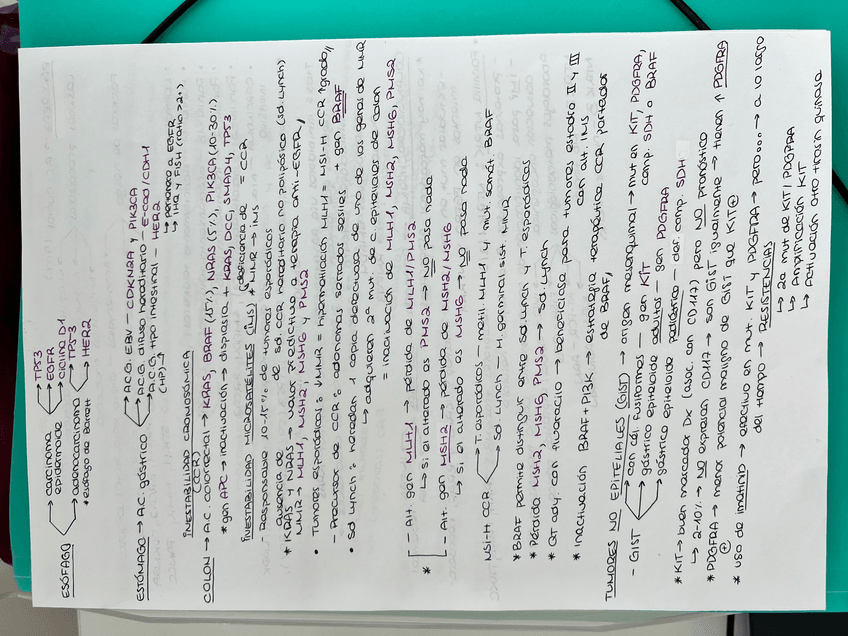 ESÓFAGO → carcinoma epidermoide → TP53
→ EGFR
→ ciclina D1
→ adenocarcinoma → TP53
* esófago de Barrett → HER2
ESTÓMAGO → A.C. gástrico → A.C.G. EBV - CDKN2A y PIK3CA
→ A.C.G. difuso hereditario - E-cad/CDH1
→ A.C.G. tipo intestinal - HER2
(HP) → → pertenece a EGFR
→ IHQ y FISH (ratio >2+)
INESTABILIDAD CROMOSÓMICA
(CCR)
COLON → A.C. colorrectal → KRAS, BRAF (15%), NRAS (5%), PIK3CA (10-30%)
* gen APC → inactivación → displasia + KRAS, DCC, SMAD4, TP53
INESTABILIDAD MICROSATÉLITES (IMS) * MMR → IMS (deficiencia de = CCR
- Responsable 10-15% de tumores esporádicos
ausencia de de sd. CCR hereditario no polipósico (sd. Lynch)
* KRAS y NRAS → valor predictivo a terapia anti-EGFR,
MMR → MLH1, MSH2, MSH6 y PMS2
• Tumores esporádicos: ↓ MMR = hipermetilación MLH1 = MSI-H CCR ↑grado,,
- Precursor de CCR: adenomas serrados sésiles + gen BRAF
• Sd Lynch: heredan 1 copia defectuosa de uno de los genes de MMR
→ adquieren 2ª mut. de c. epiteliales de colon
= inactivación de MLH1, MSH2, MSH6, PMS2
- Alt. gen MLH1 → pérdida de MLH1/PMS2
→ si el alterado es PMS2 → no pasa nada
* - Alt. gen MSH2 → pérdida de MSH2/MSH6
→ si el alterado es MSH6 → no pasa nada
MSI-H CCR → T. esporádicos - metil MLH1 y mut. somát. BRAF
→ Sd Lynch - M. germinal sist. MMR
* BRAF permite distinguir entre sd Lynch y T. esporádicos
* Pérdida MSH2, MSH6, PMS2 → Sd. Lynch
* QT ady. con fluoracilo → beneficiosa para tumores estadio II y III
con alt. IMS
* Inactivación BRAF + PI3K → estrategia terapéutica CCR portador
de BRAF,
TUMORES NO EPITELIALES (GIST) → origen mesenquimal → mut en KIT, PDGFRA,
comp. SDH o BRAF
- GIST → con cél. fusiformes - gen KIT
→ gástrico epitelioide adultos - gen PDGFRA
→ gástrico epitelioide pediátrico - def. comp. SDH
* KIT → buen marcador Dx (asoc. con CD117) pero NO pronóstico
→ 2-10% → NO expresan CD117 → son GIST igualmente → tienen ↑ PDGFRA
* PDGFRA → menor potencial maligno de GIST que KIT⊕
⊕
* uso de imatinib → efectivo en mut. KIT y PDGFRA → pero... → a lo largo
del tiempo → RESISTENCIAS
→ 2a mut de KIT/PDGFRA
→ Amplificación KIT
→ Activación otro tirosin quinasa